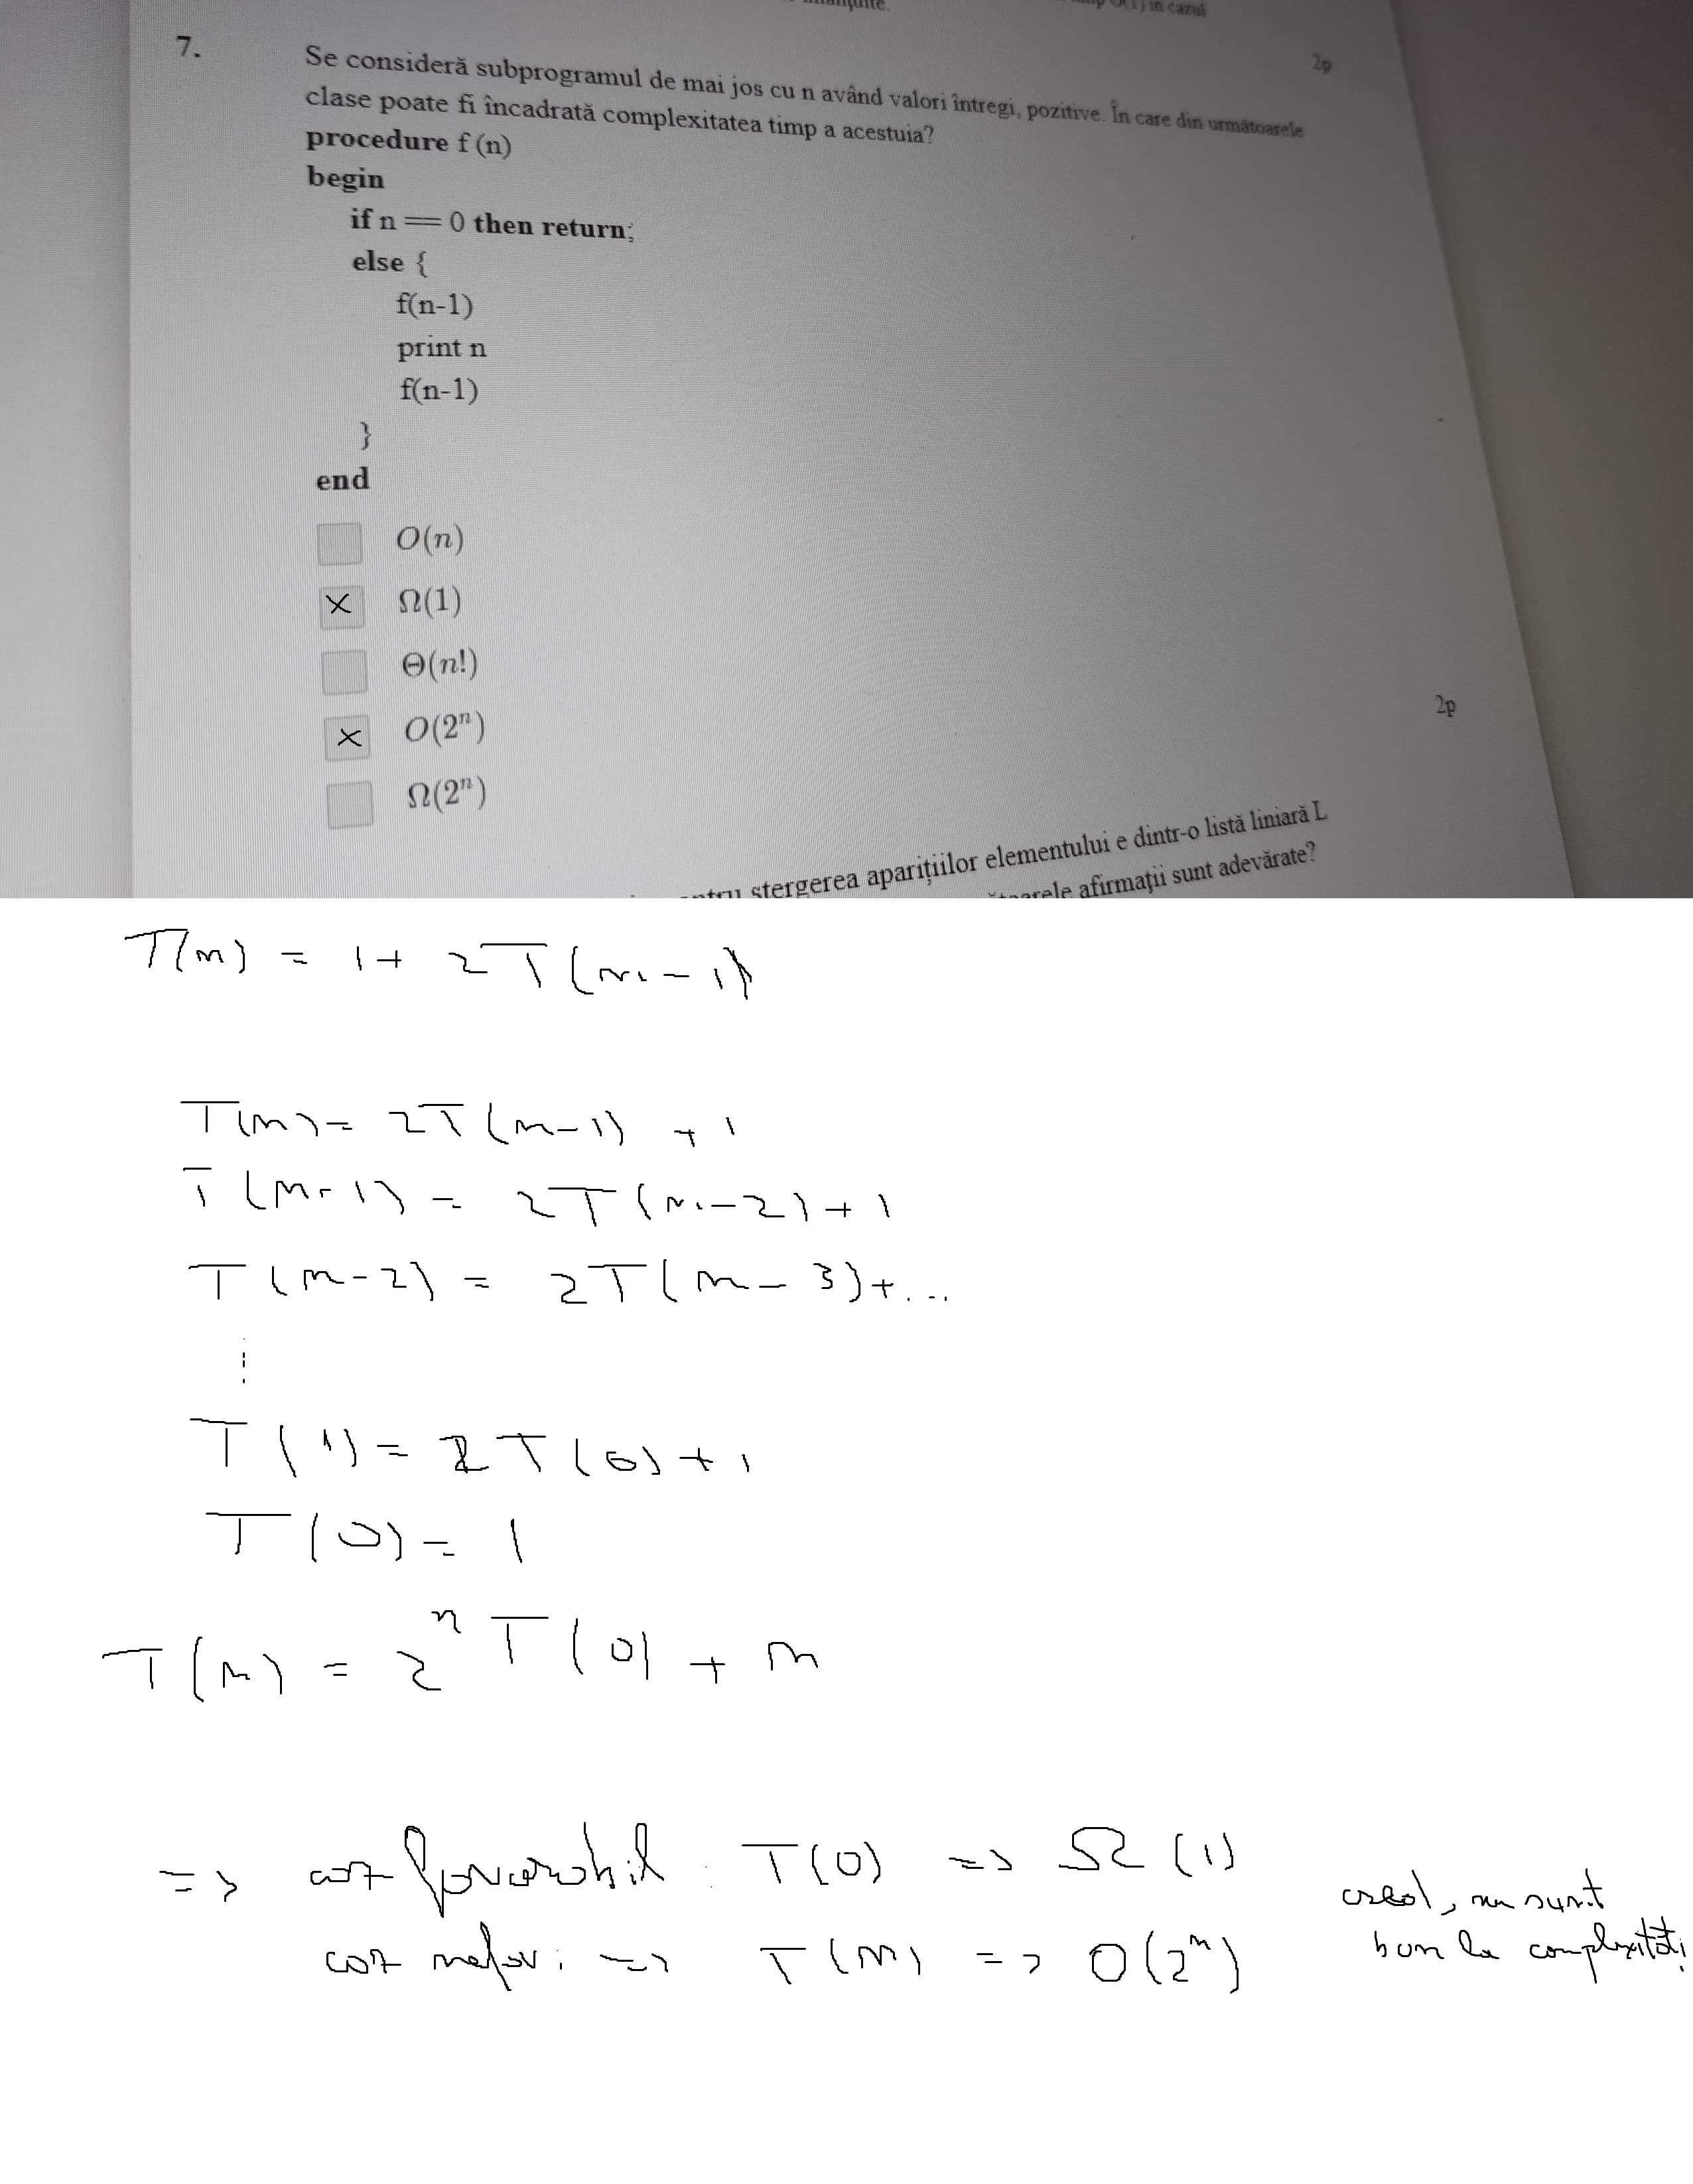 O(1) în cazul
7.
2p
Se consideră subprogramul de mai jos cu n având valori întregi, pozitive. În care din următoarele
clase poate fi încadrată complexitatea timp a acestuia?
procedure f (n)
begin
if n == 0 then return;
else {
f(n-1)
print n
f(n-1)
}
end
O(n)
× Ω(1)
Θ(n!)
× O(2ⁿ)
Ω(2ⁿ)
2p
ștergerea aparițiilor elementului e dintr-o listă liniară L
afirmaţii sunt adevărate?
T(n) = 1 + 2T(n-1)
T(n) = 2T(n-1) + 1
T(n-1) = 2T(n-2) + 1
T(n-2) = 2T(n-3) + ...
⋮
T(1) = 2T(0) + 1
T(0) = 1
T(n) = 2ⁿ T(0) + n
=> caz favorabil : T(0) => Ω(1)
caz nefav: => T(n) => O(2ⁿ)
cred, nu sunt
bun la complexități